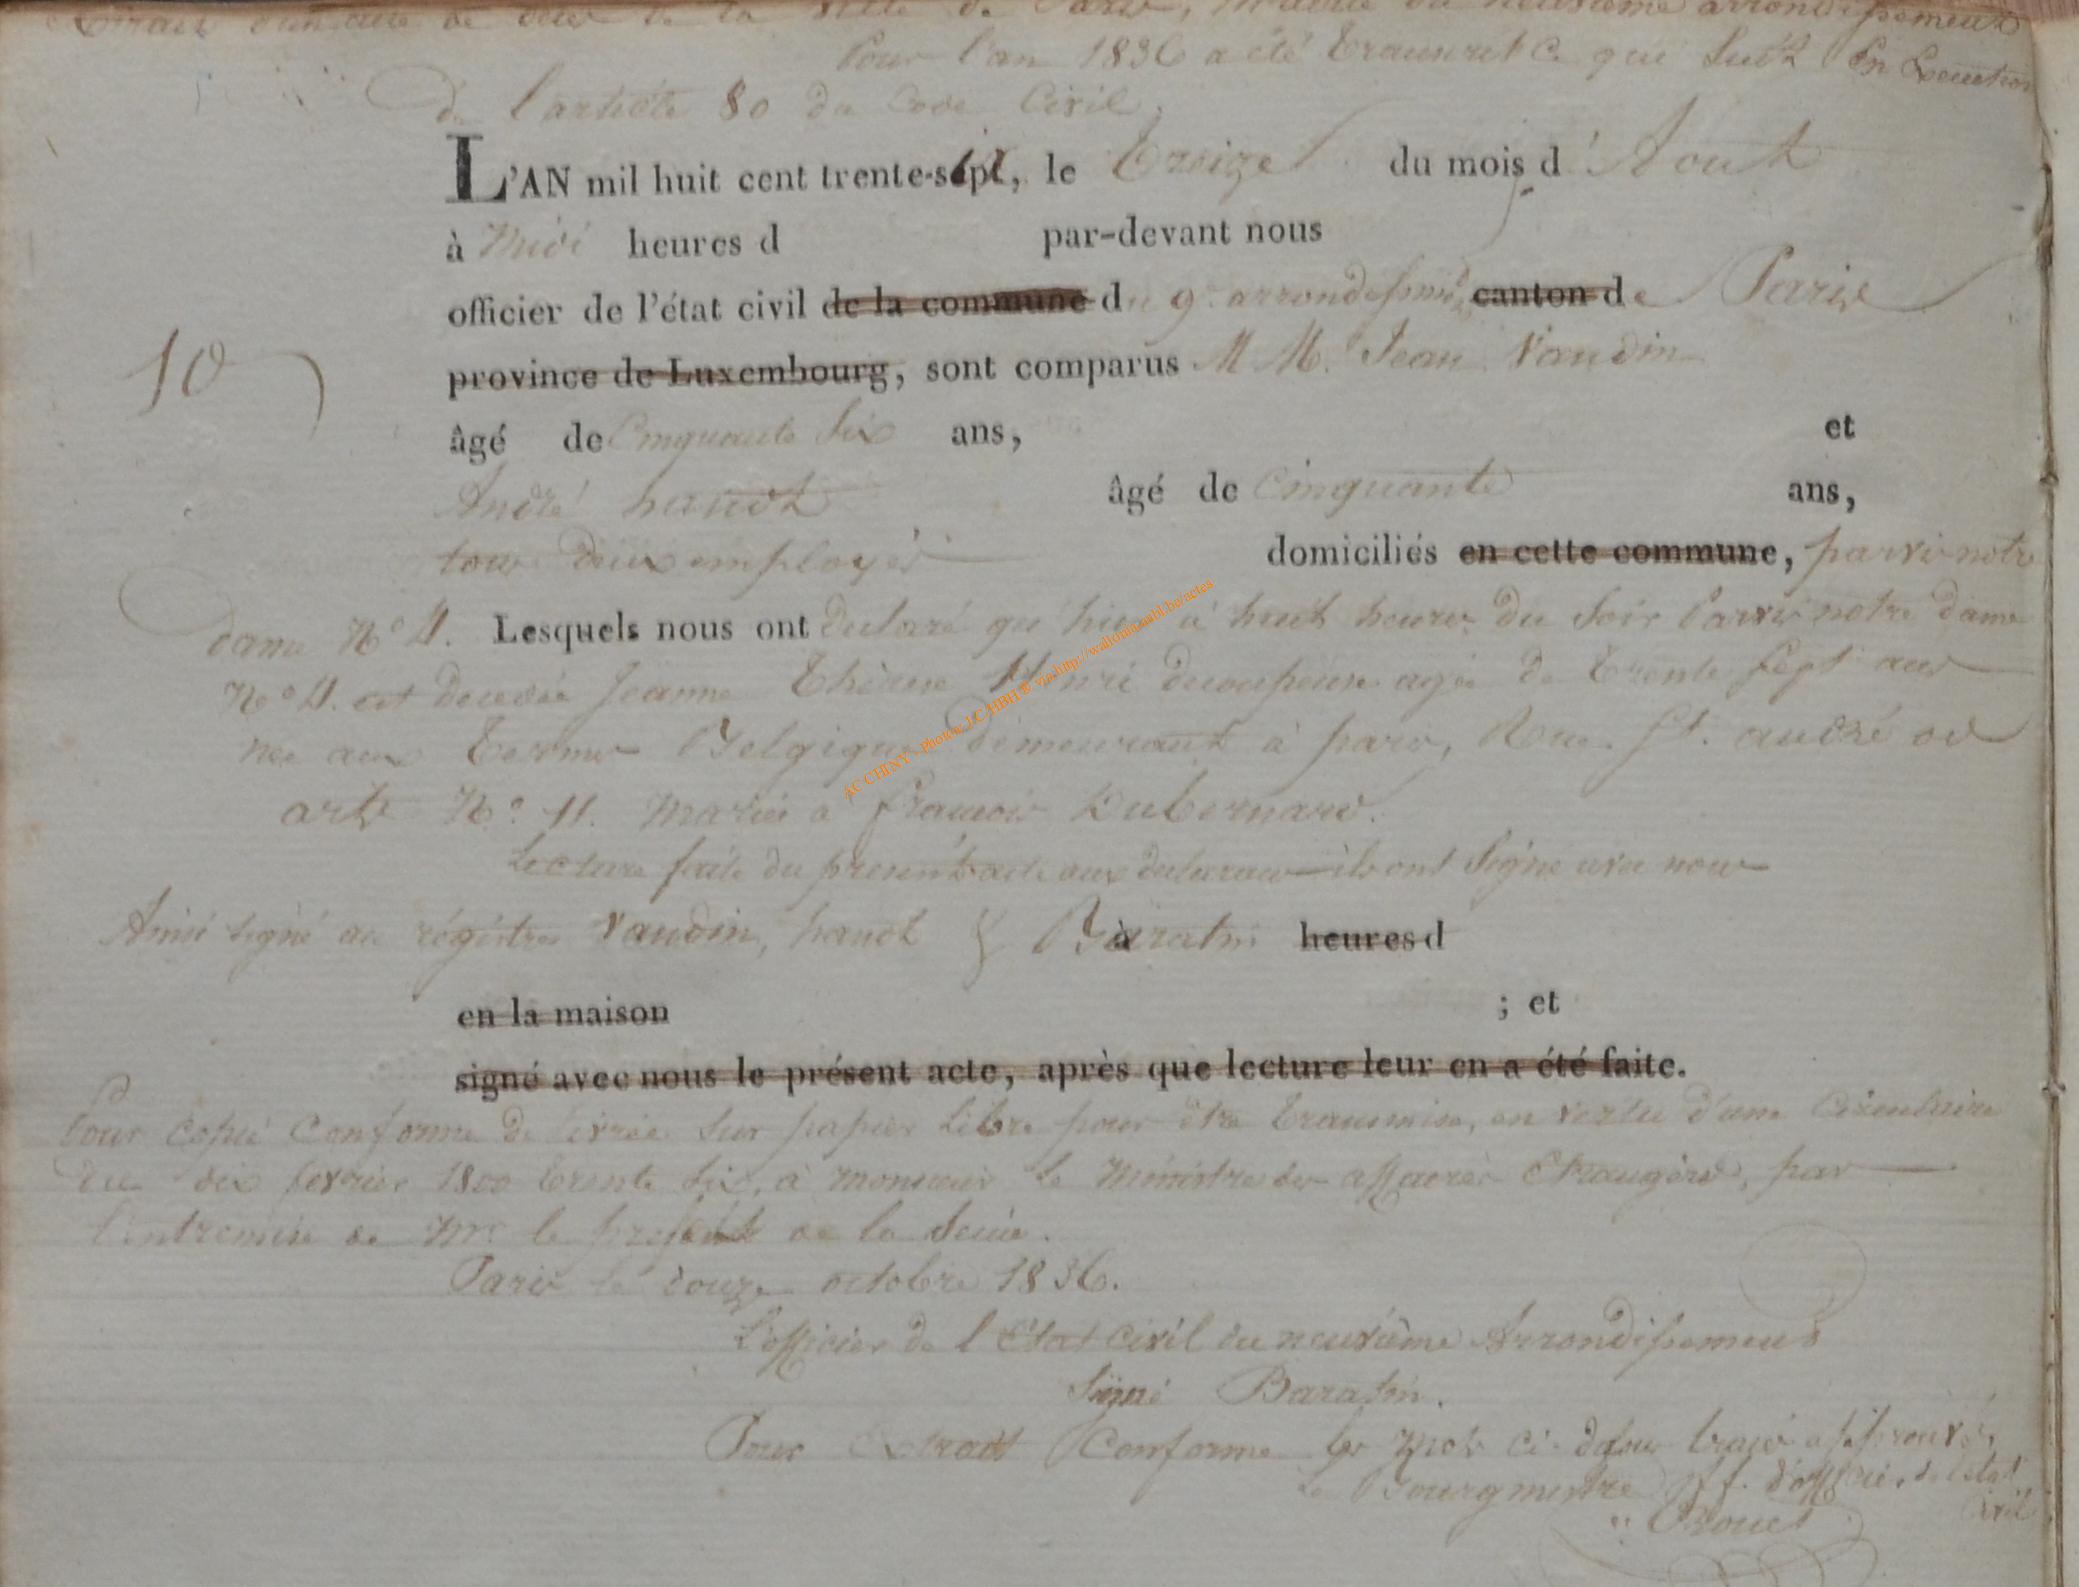 Extrait d'un acte de deces de la Ville de Paris, Mairie du neuvieme arrondissement
Pour l'an 1836 a été Transcrit Ce qui Suit En Execution
de l'article 80 du Code Civil.
L'AN mil huit cent trente-six, le Treize du mois d'Aout
à Midi heures d par-devant nous
officier de l'état civil de la commune du 9e arrondissmt, canton de Paris
10
province de Luxembourg, sont comparus M M. Jean Vaudin
âgé de Cinquante Six ans, et
André hanot âgé de Cinquante ans,
tous deux employés domiciliés en cette commune, parvis notre
dame No 4. Lesquels nous ont declaré qu'hier à huit heures du Soir Parvis notre dame
No 4. est decedée Jeanne Thérèse Henri decoupeuse agée de Trente Sept ans
née aux Termes Belgique demeurant à paris, Rue St. andré des
arts No. 11. mariée à françois Dubernard.
Lecture faite du présent acte aux declarans ils ont Signé avec nous
Ainsi signé au régistre Vaudin, hanot & Baratin à heures d
en la maison ; et
signé avec nous le présent acte, après que lecture leur en a été faite.
Pour Copie Conforme Delivrée Sur papier Libre pour être Transmise, en vertu d'une Circulaire
du dix fevrier 1800 trente Six, à monsieur le Ministre des affaires Etrangères, par
l'entremise de Mr. le prefet de la Seine.
Paris le douze octobre 1836.
L'officier de l'Etat Civil du neuvième Arrondissement
Signé Baratin.
Pour Extrait Conforme les mots ci-dessus traces approuvés,
Le Bourgmestre ff. d'officier de l'état
Civil
AC CHINY - Photos: J.C. HBH ® via http://wallonia.aabl.be/actes